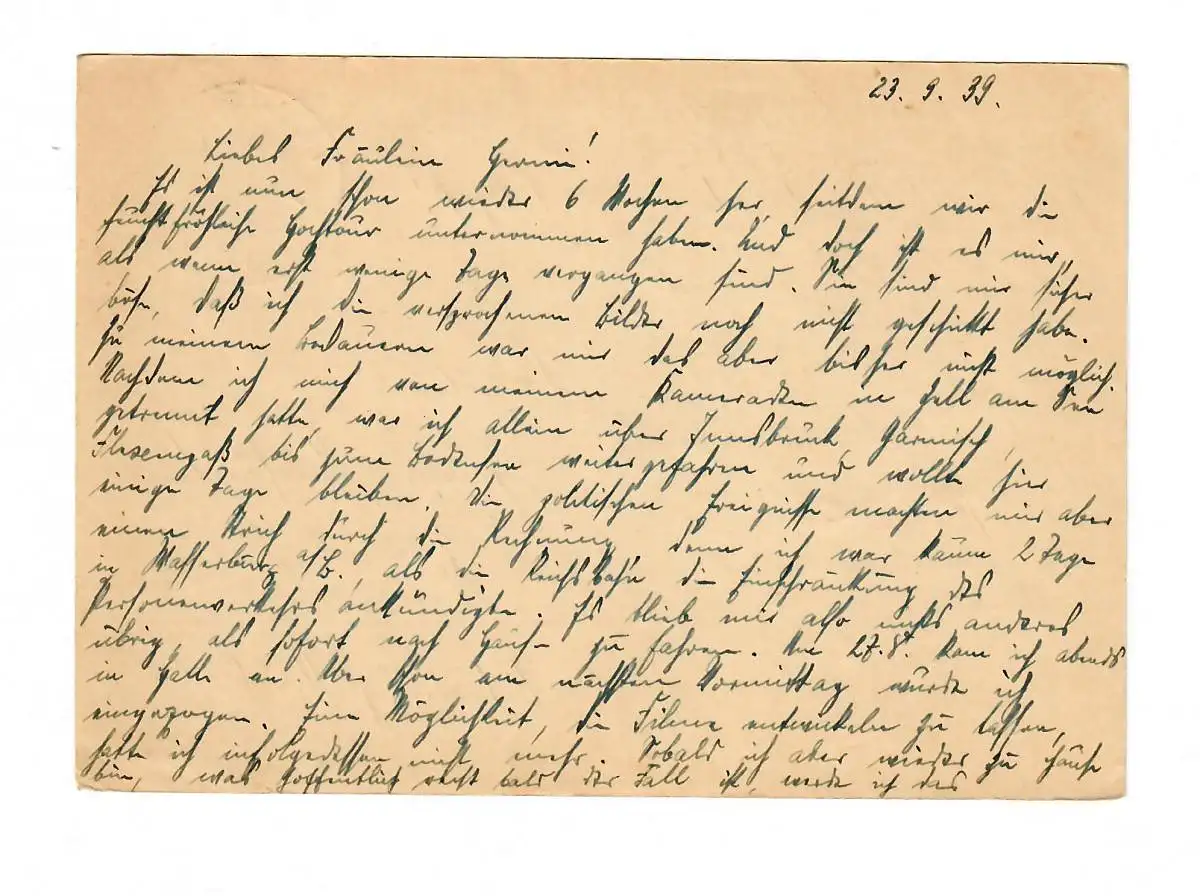 23. 9. 39.
Liebes Fräulein Hermi!
Es ist nun schon wieder 6 Wochen her, seitdem wir die
feucht fröhliche Hochtour unternommen haben. Und doch ist es mir,
als wenn erst wenige Tage vergangen sind. Sie sind mir sicher
böse, daß ich die versprochenen Bilder noch nicht geschickt habe.
Zu meinem Bedauern war mir das aber bisher nicht möglich.
Nachdem ich mich von meinem Kameraden in Zell am See
getrennt hatte, war ich allein über Innsbruck, Garmisch,
bis zum Bodensee weitergefahren und wollte hier
einige Tage bleiben. Die politischen Ereignisse machten mir aber
einen Strich durch die Rechnung, denn ich war kaum 2 Tage
in Wasserburg a/B., als die Reichsbahn die Einschränkung des
Personenverkehrs ankündigte. Es blieb mir also nichts anderes
übrig, als sofort nach Hause zu fahren. Am 27.8. kam ich abends
in Halle an. Aber schon am nächsten Vormittag wurde ich
eingezogen. Eine Möglichkeit, die Filme entwickeln zu lassen,
hatte ich infolgedessen nicht mehr. Sobald ich aber wieder zu Hause
bin, was hoffentlich recht bald der Fall ist, werde ich das